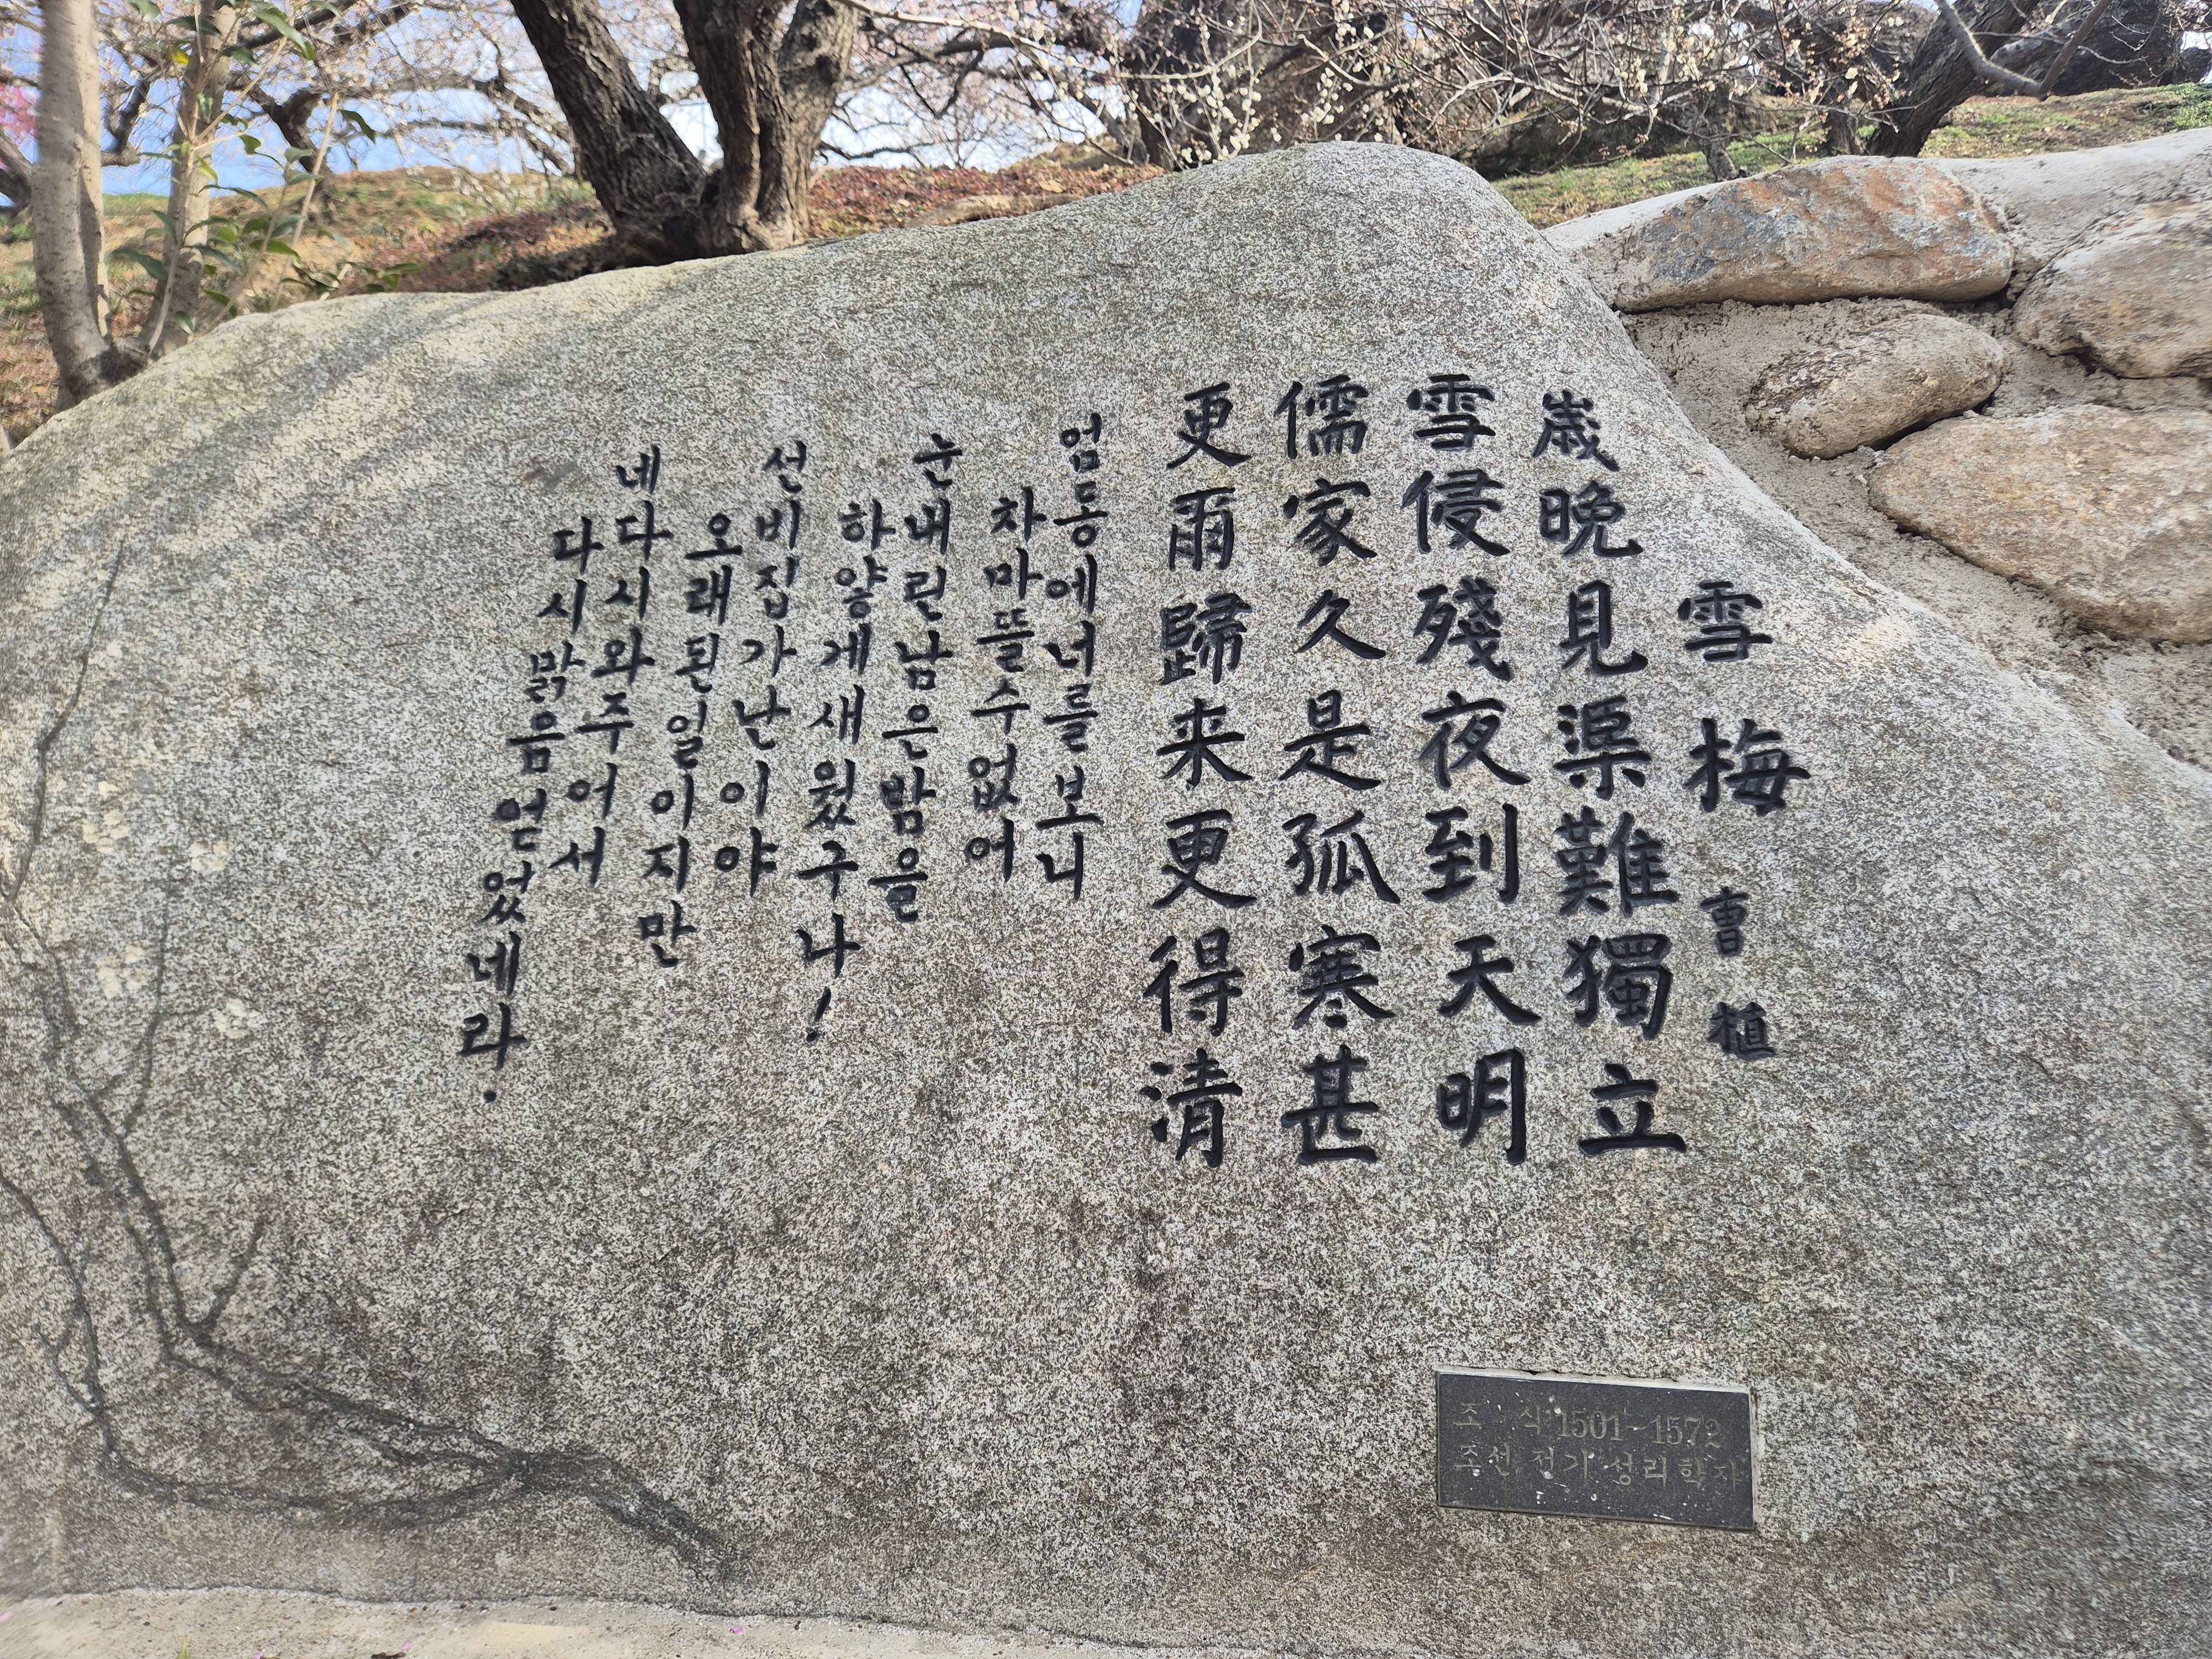 雪梅 曺植
歲晩見渠難獨立
雪侵殘夜到天明
儒家久是孤寒甚
更雨歸来更得清
엄동에너를보니
차마뜰수없어
눈내린남은밤을
하얗게새웠구나!
선비집가난이야
오래된일이지만
네다시와주어서
다시맑음얻었네라.
조 식 1501~1572
조선 전기 성리학자